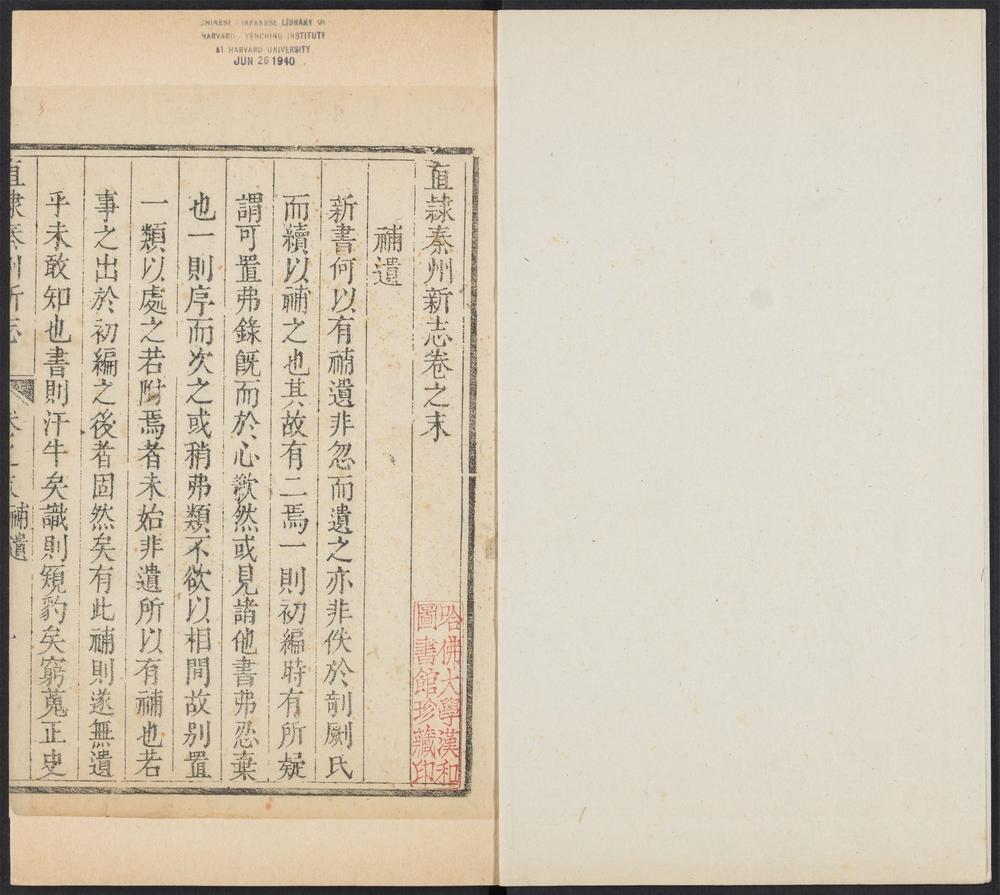 CHINESE - JAPANESE LIBRARY OF
HARVARD - YENCHING INSTITUTE
AT HARVARD UNIVERSITY
JUN 26 1940
直隸秦州新志卷之末
哈佛大學漢和
圖書館珍藏印
補遺
新書何以有補遺非忽而遺之亦非佚於剞劂氏
而續以補之也其故有二焉一則初編時有所疑
謂可置弗錄旣而於心歉然或見諸他書弗忍棄
也一則序而次之或稍弗類不欲以相間故别置
一類以處之若附焉者未始非遺所以有補也若
事之出於初編之後者固然矣有此補則遂無遺
乎未敢知也書則汗牛矣識則窺豹矣窮蒐正史
直隸秦州新志 卷之末 補遺 一